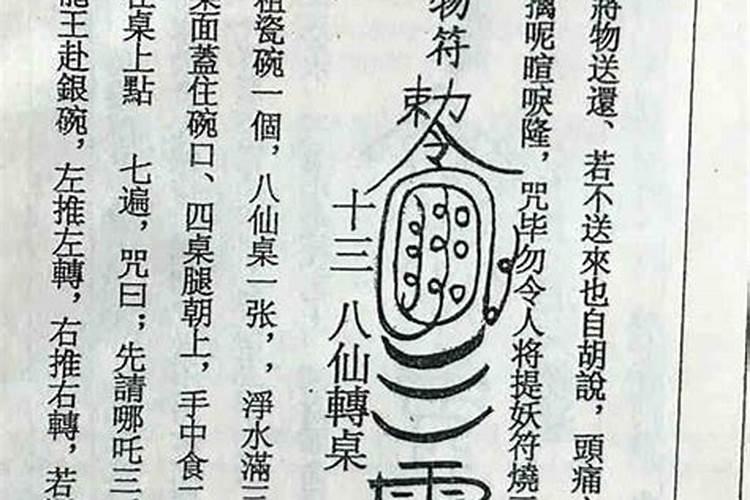 將物送還、若不送來也自胡說，頭痛
擒呢暄唳隆，咒毕勿令人将提妖符燒
物符
勅令
十三 八仙轉桌
粗瓷碗一個，八仙桌一张，，淨水滿三
桌面蓋住碗口、四桌腿朝上，手中食
在桌上點 七遍，咒曰；先請哪吒三
龍王赴銀碗，左推左轉，右推右轉，若